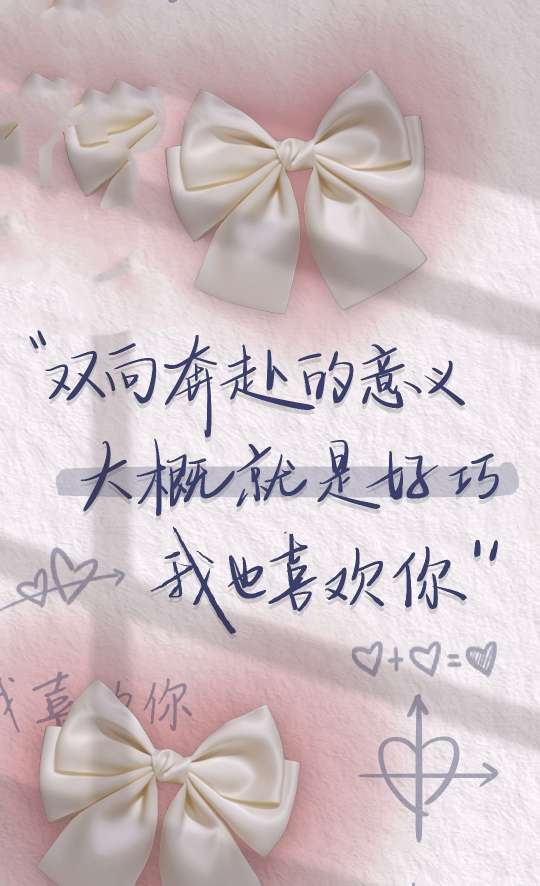 "双向奔赴的意义
大概就是好巧
我也喜欢你"
♡+♡=♥
我喜欢你